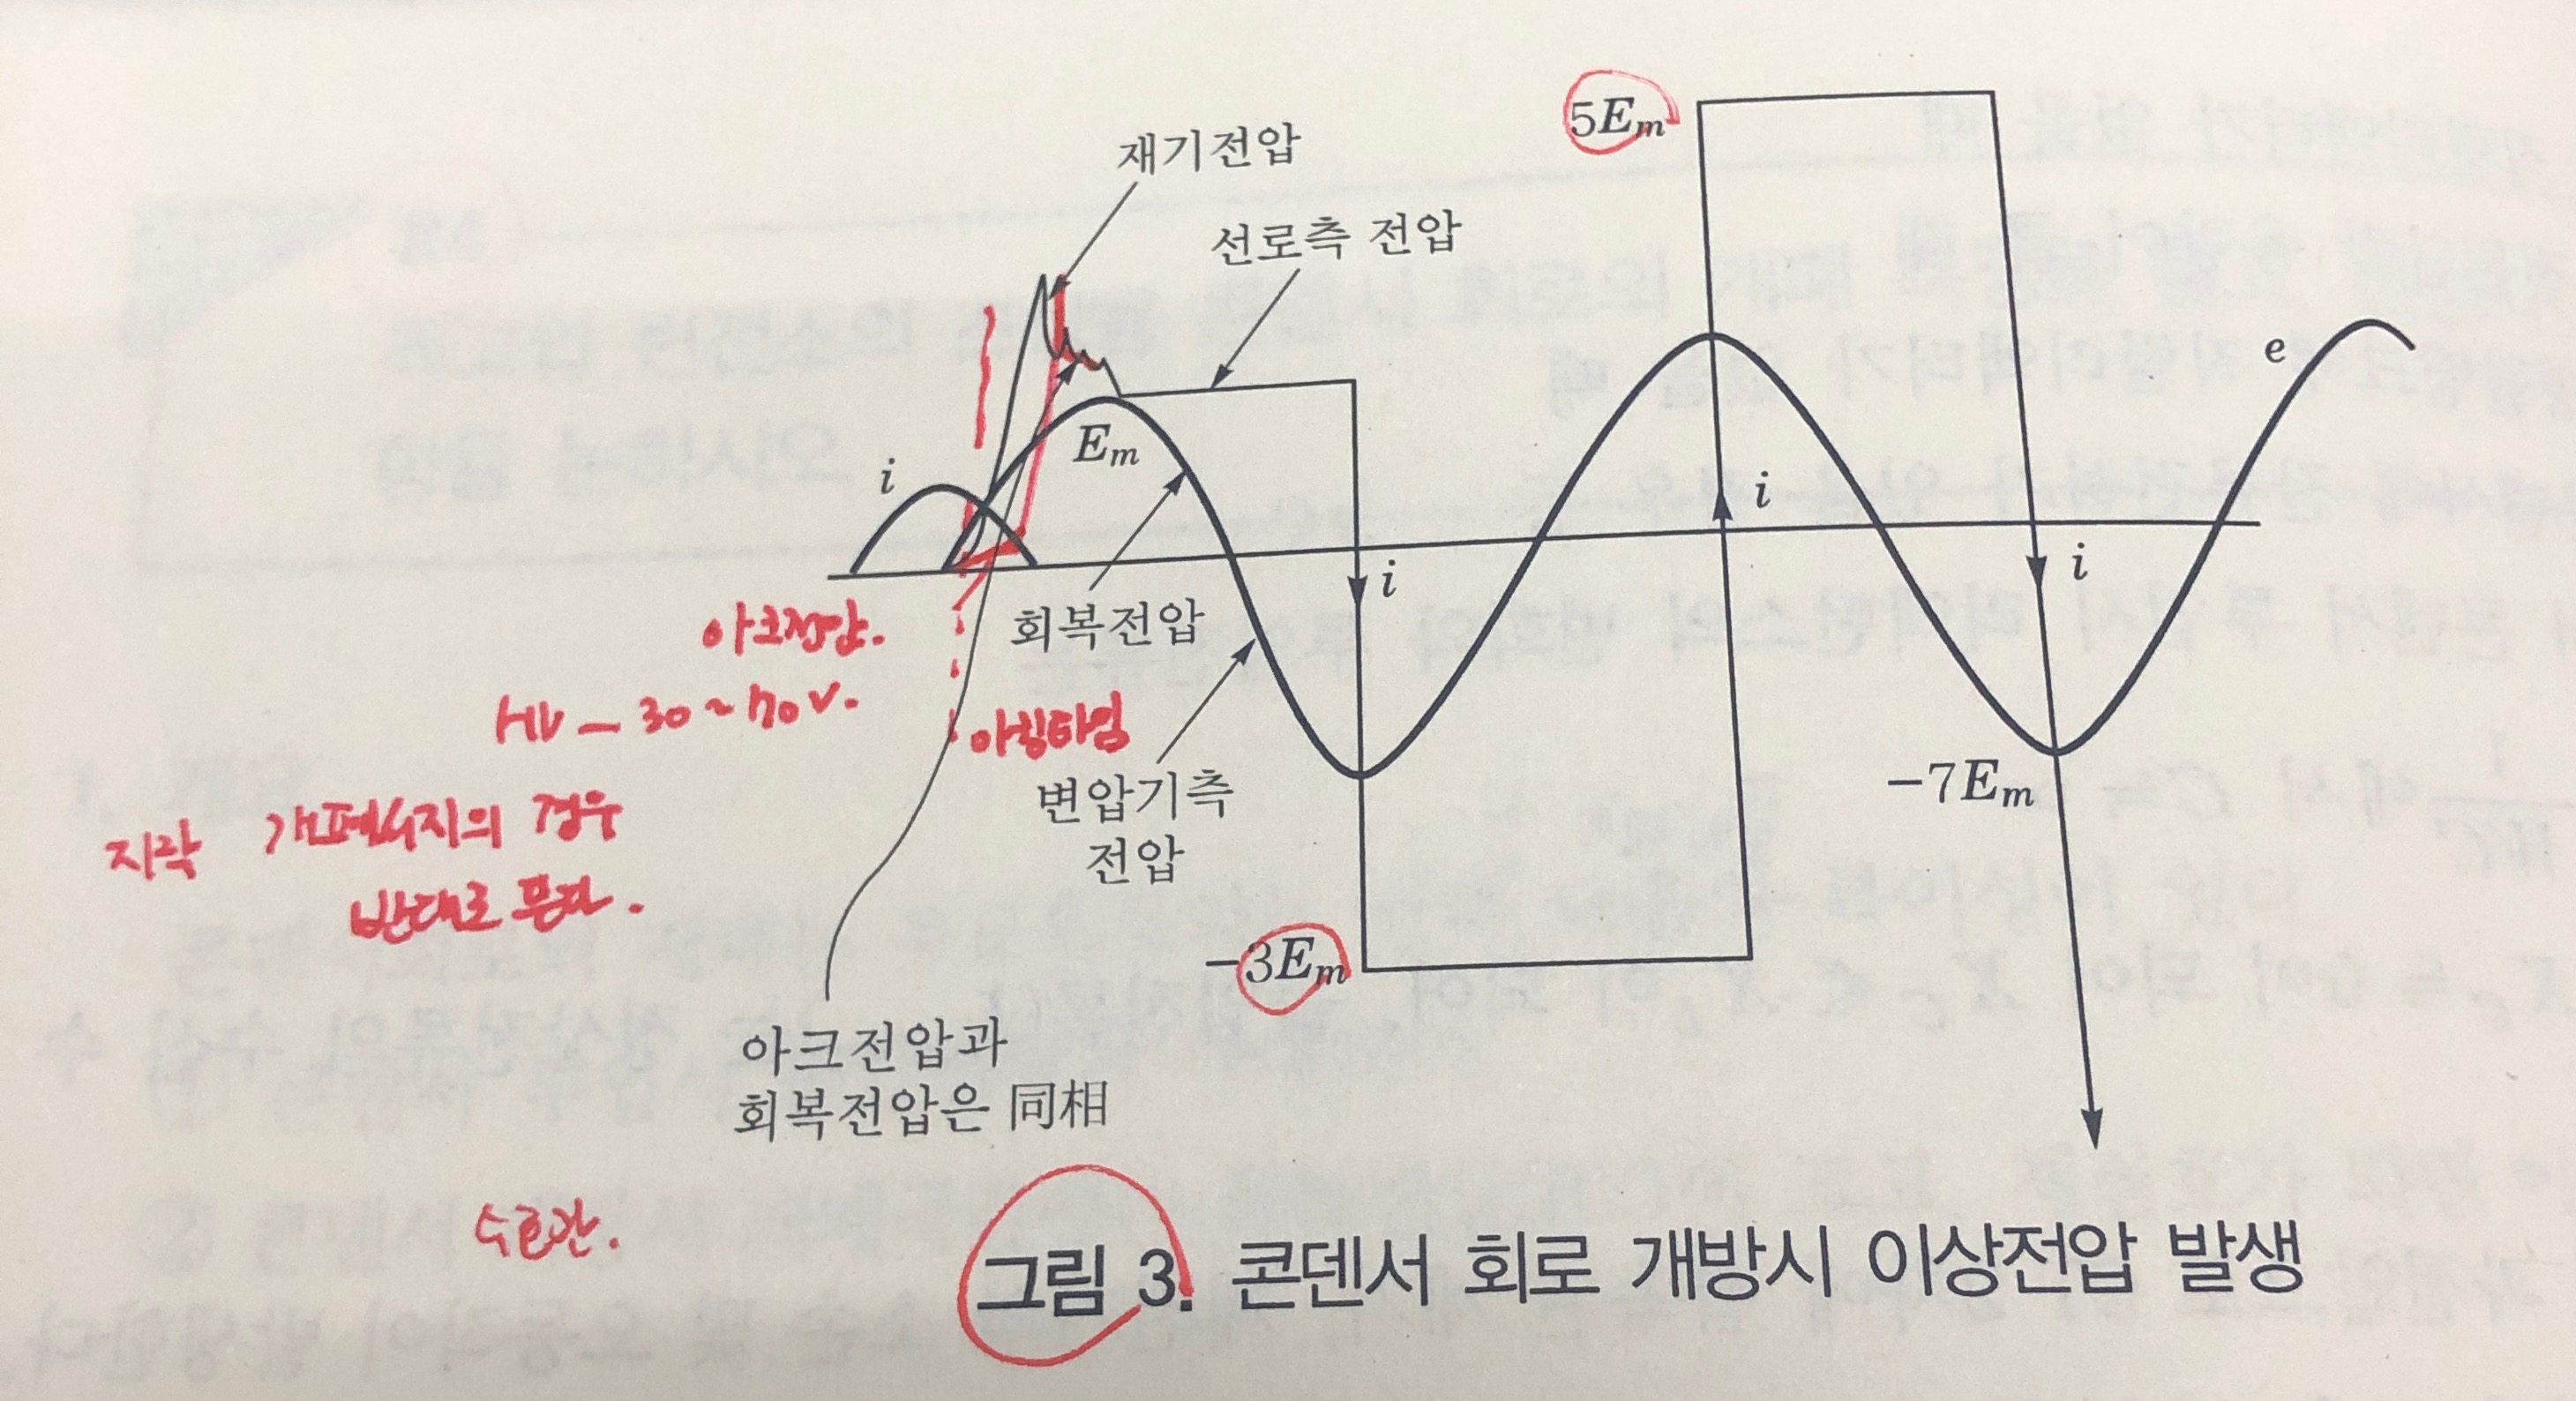 5Eₘ
재기전압
선로측 전압
e
i
Eₘ
i
i
i
회복전압
아크전압.
HV - 30 ~ 70V.
아킹타임
변압기측
전압
-7Eₘ
지락
개폐서지의 경우
반대로
-3Eₘ
아크전압과
회복전압은 同相
그림 3. 콘덴서 회로 개방시 이상전압 발생